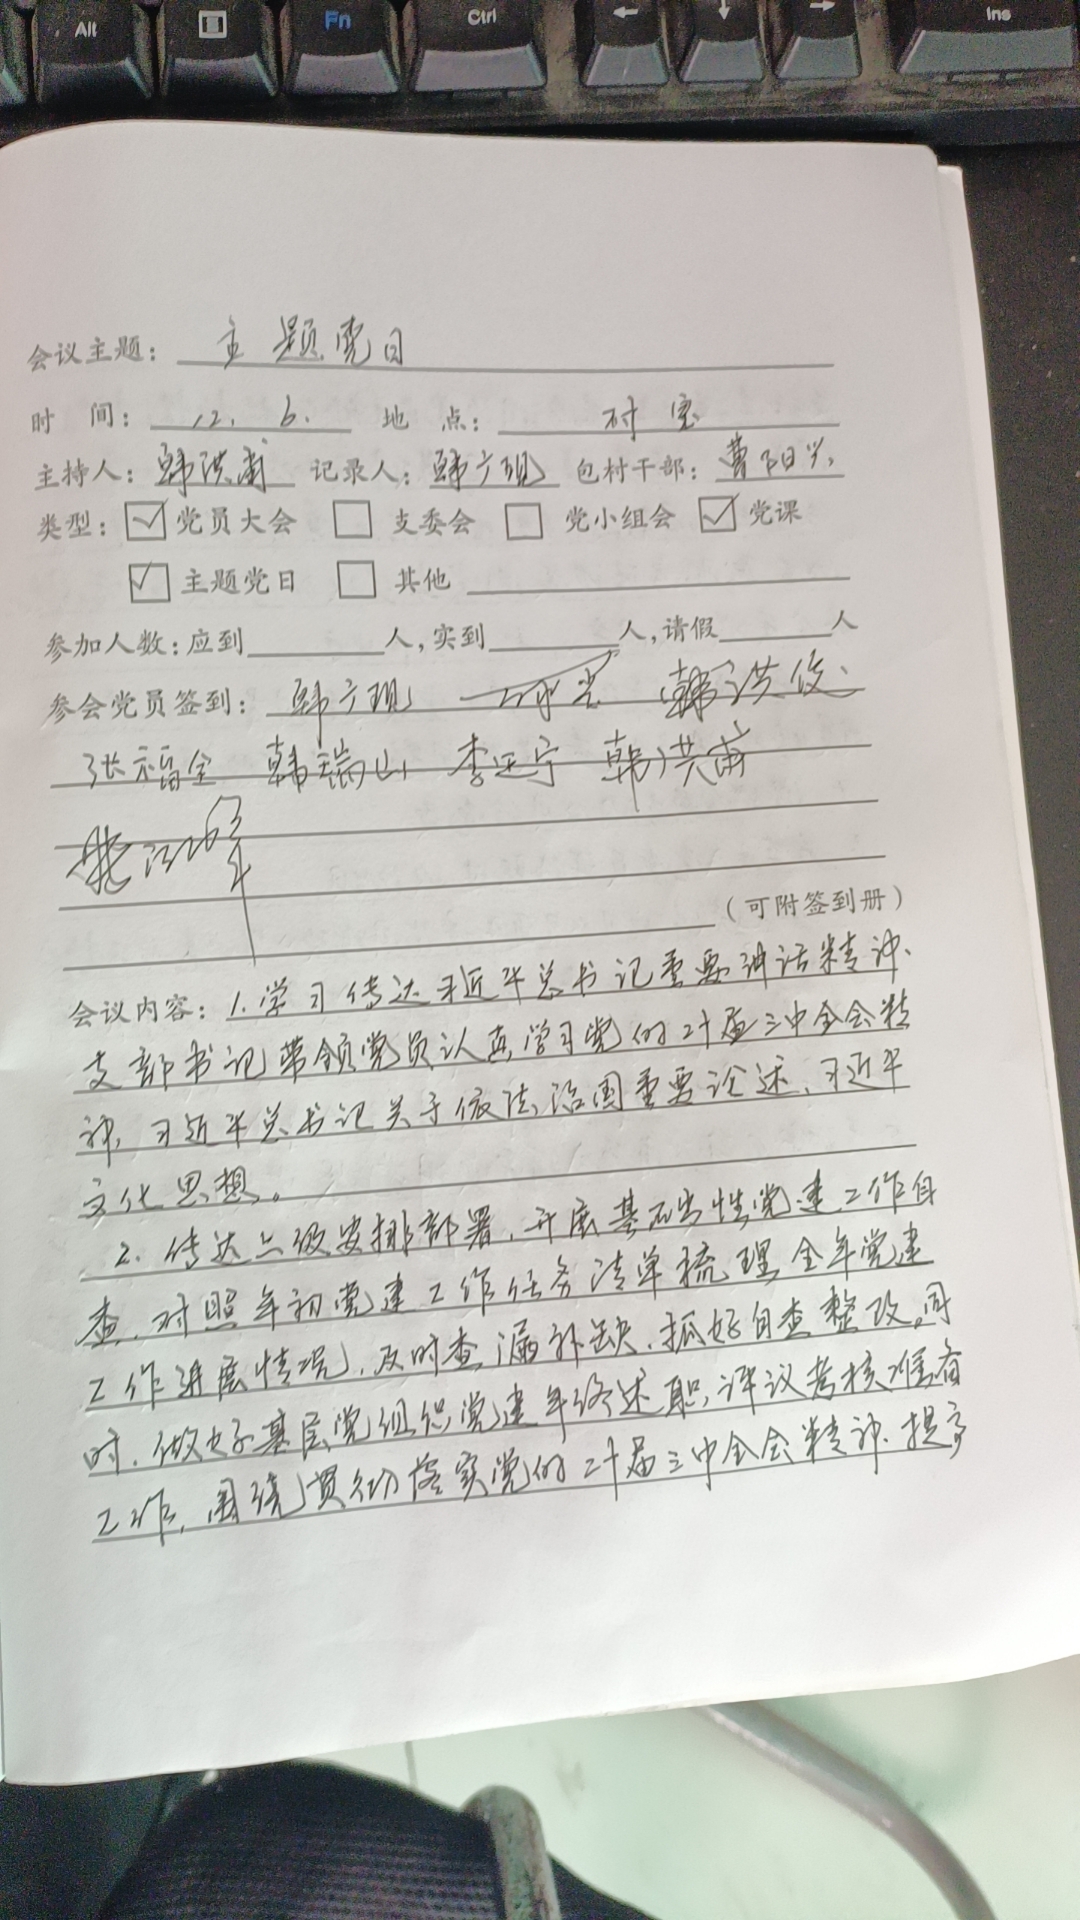 Alt Fn Ctrl ← ↓ → Ins
会议主题： 主题党日
时 间： 12. 6. 地 点： 村室
主持人：韩洪甫 记录人：韩广现 包村干部：曹阳兴
类型： ☑ 党员大会 □ 支委会 □ 党小组会 ☑ 党课
☑ 主题党日 □ 其他
参加人数：应到 人，实到 人，请假 人
参会党员签到： 韩广现 韩洪俊
张福全 韩瑞山 李廷宁 韩洪甫
（可附签到册）
会议内容： 1.学习传达习近平总书记重要讲话精神、
支部书记带领党员认真学习党的二十届三中全会精
神，习近平总书记关于依法治国重要论述、习近平
文化思想。
2.传达上级安排部署，开展基础性党建工作自
查，对照年初党建工作任务清单梳理全年党建
工作进展情况，及时查漏补缺，抓好自查整改，同
时，做好基层党组织党建年终述职，评议考核准备
工作，围绕贯彻落实党的二十届三中全会精神、提高